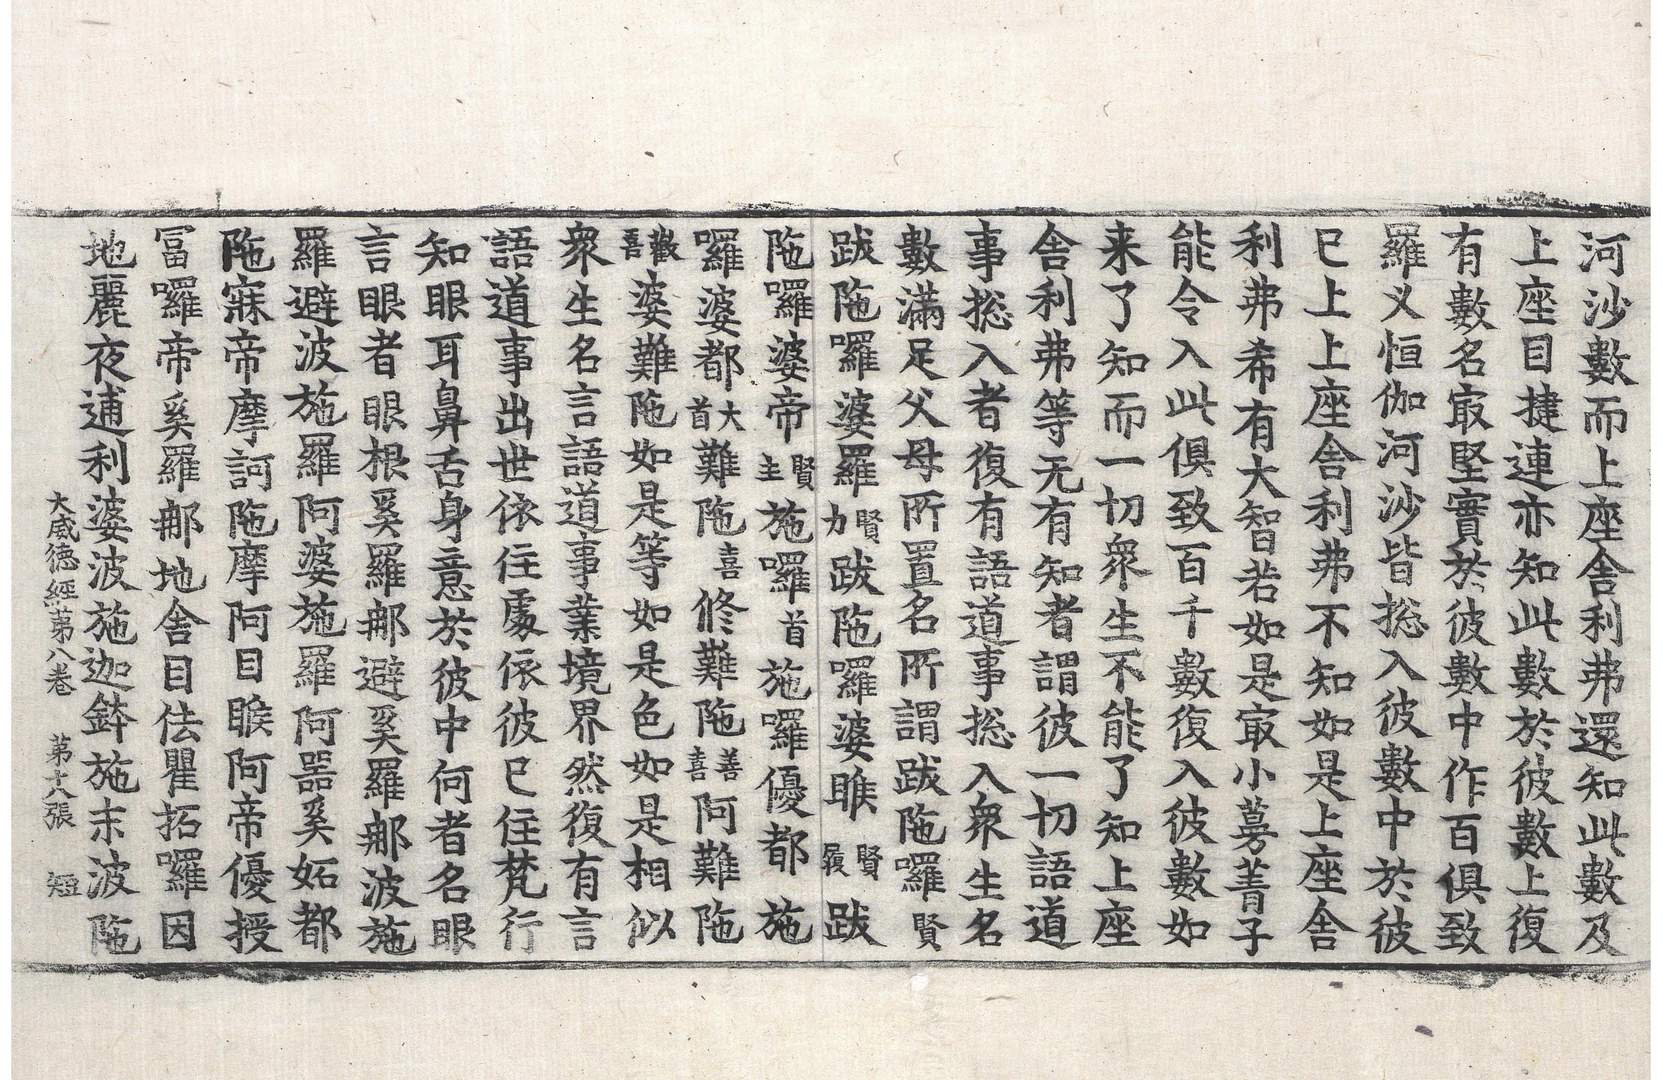 河沙數而上座舍利弗還知此數及
上座目揵連亦知此數於彼數上復
有數名冣堅實於彼數中作百俱致
羅义恒伽河沙皆捴入彼數中於彼
已上上座舍利弗不知如是上座舍
利弗希有大智若如是冣小蒭菁子
能令入此俱致百千數復入彼數如
来了知而一切衆生不能了知上座
舍利弗等无有知者謂彼一切語道
事捴入者復有語道事捴入衆生名
數滿足父母所置名所謂跋陁囉賢
跋陁囉婆羅賢力跋陁囉婆睢賢履跋
陁囉婆帝賢主施囉首施囉優都施
囉婆都大首難陁喜修難陁善喜阿難陁
歡喜婆難陁如是等如是色如是相似
衆生名言語道事業境界然復有言
語道事出世依住處依彼已住梵行
知眼耳鼻舌身意於彼中何者名眼
言眼者眼根奚羅郍避奚羅郍波施
羅避波施羅阿婆施羅阿噐奚妬都
陁寐帝摩訶陁摩阿目睺阿帝優授
冨囉帝奚羅郍地舍目佉瞿拓囉因
地麗夜逋利婆波施迦鉢施末波陁
大威德經第八卷 第十六張 短